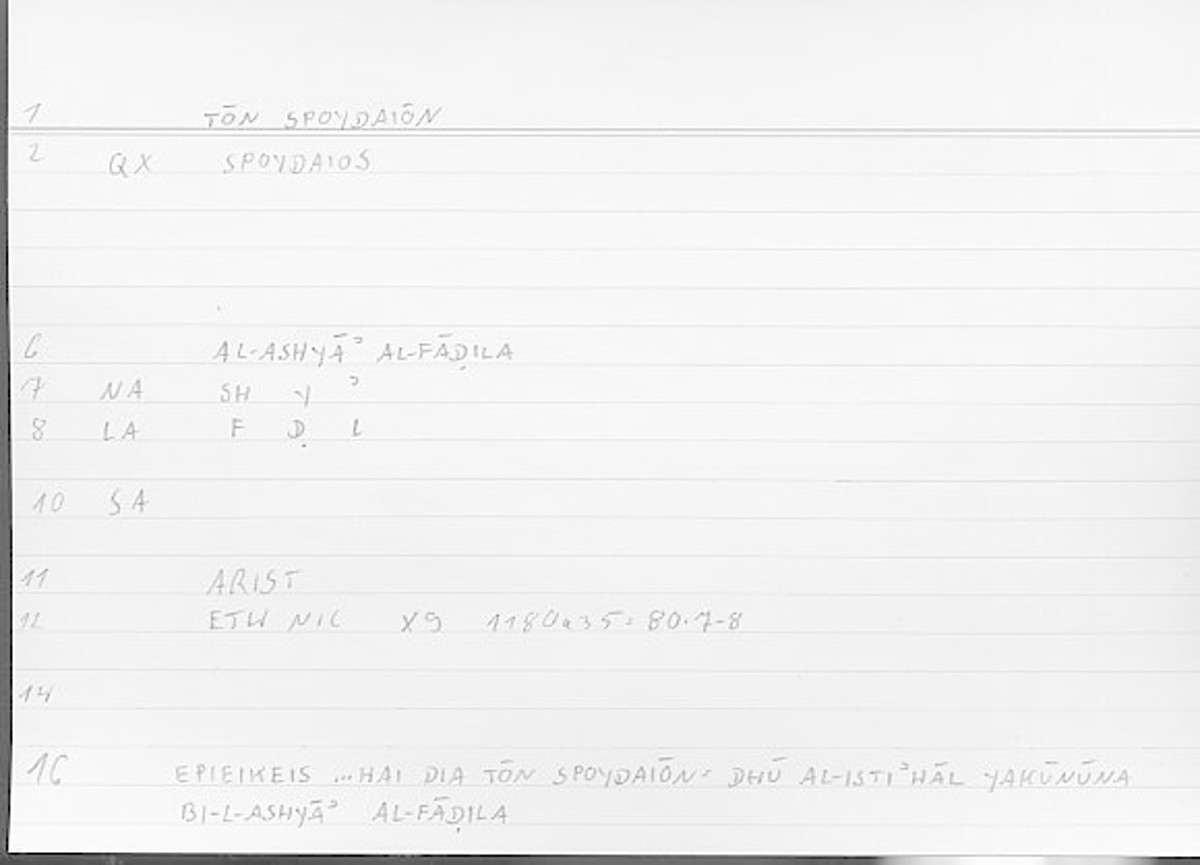 1 TŌN SPOYDAIŌN
2 QX SPOYDAIOS
6 AL-ASHYĀʾ AL-FĀḌILA
7 NA SH Y ʾ
8 LA F Ḍ L
10 SA
11 ARIST
12 ETH NIC X9 1180a35 = 80.7-8
14
16 EPIEIKEIS ...HAI DIA TŌN SPOYDAIŌN = DHŪ AL-ISTIʾHĀL YAKŪNŪNA
BI-L-ASHYĀʾ AL-FĀḌILA